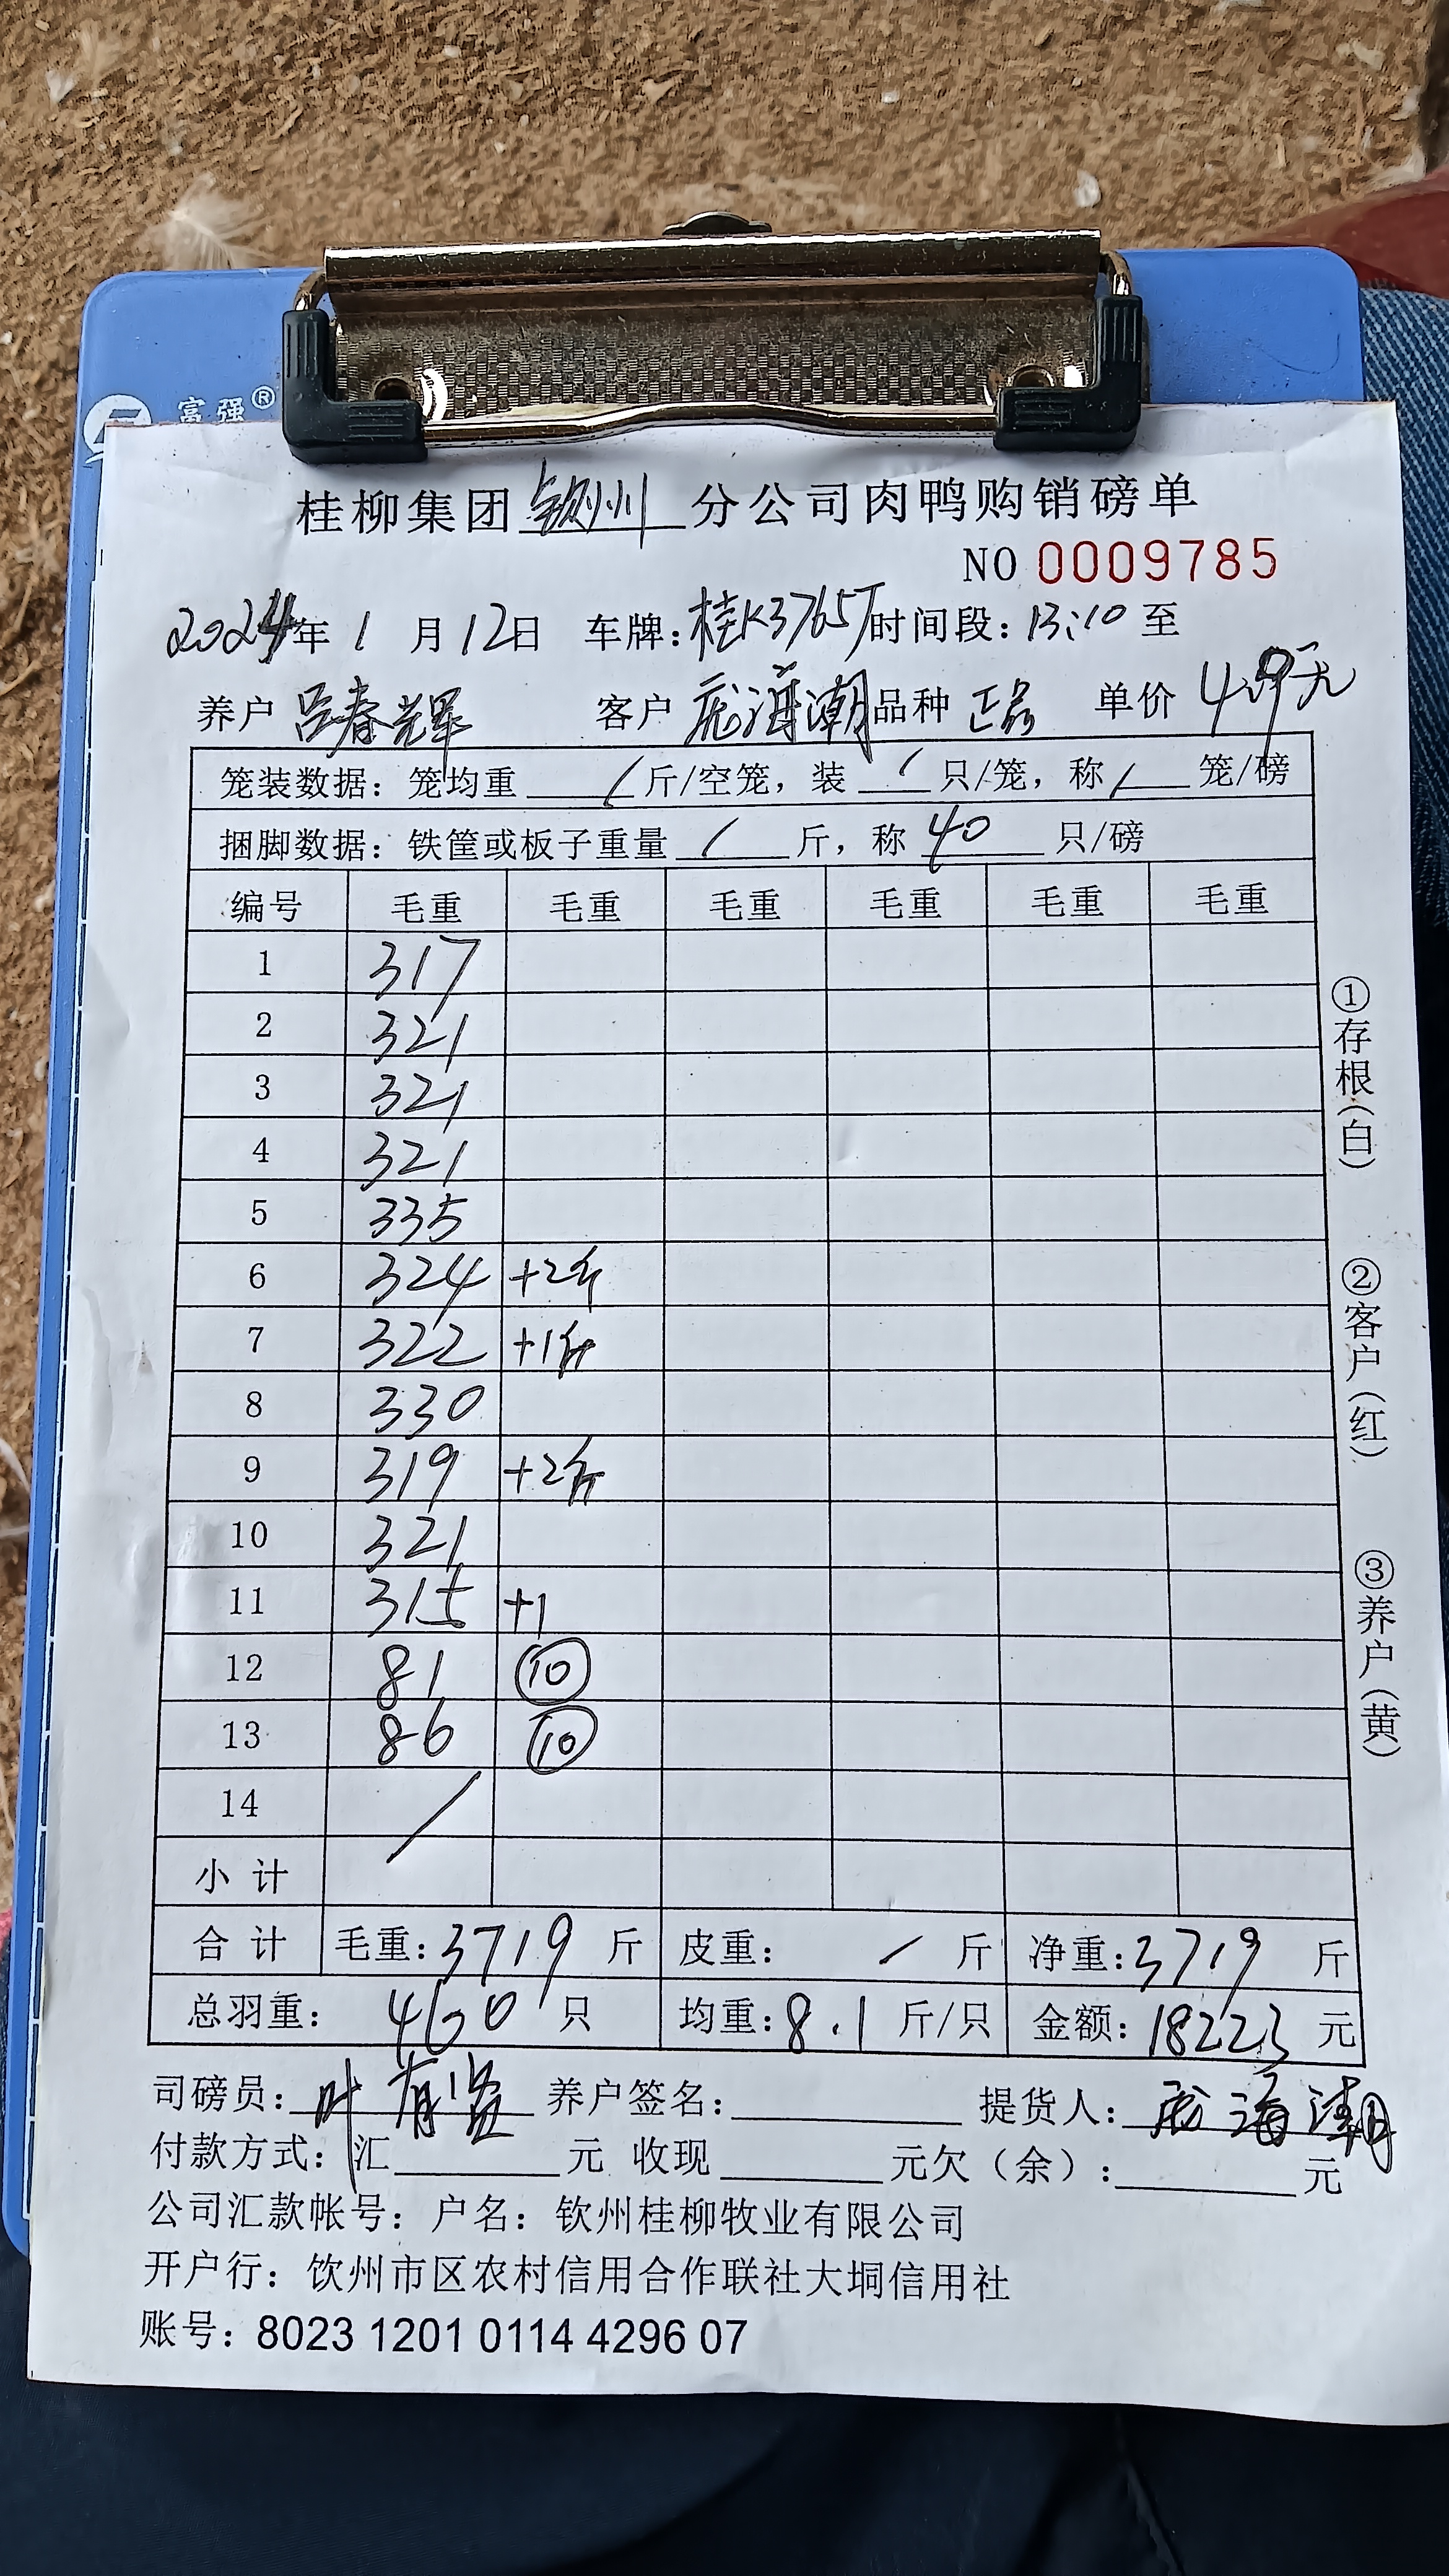 富强®
桂柳集团钦州分公司肉鸭购销磅单
NO 0009785
2024年1月12日 车牌:桂K3765T时间段:13:10至
养户 吕春辉 客户 庞海潮 品种 正品 单价 4.9元
笼装数据: 笼均重 / 斤/空笼, 装 / 只/笼, 称 / 笼/磅
捆脚数据: 铁筐或板子重量 / 斤, 称 40 只/磅
编号 毛重 毛重 毛重 毛重 毛重 毛重
1 317
2 321
3 321
4 321
5 335
6 324 +2斤
7 322 +1斤
8 330
9 319 +2斤
10 321
11 315 +1
12 81 ⑩
13 86 ⑩
14 /
小计
合计 毛重:3719 斤 皮重: / 斤 净重:3719 斤
总羽重: 460 只 均重:8.1 斤/只 金额:18223 元
司磅员: 叶 养户签名: 提货人: 庞海潮
付款方式: 汇 元 收现 元欠(余): 元
公司汇款帐号: 户名: 钦州桂柳牧业有限公司
开户行: 饮州市区农村信用合作联社大垌信用社
账号: 8023 1201 0114 4296 07
①存根(白)
②客户(红)
③养户(黄)